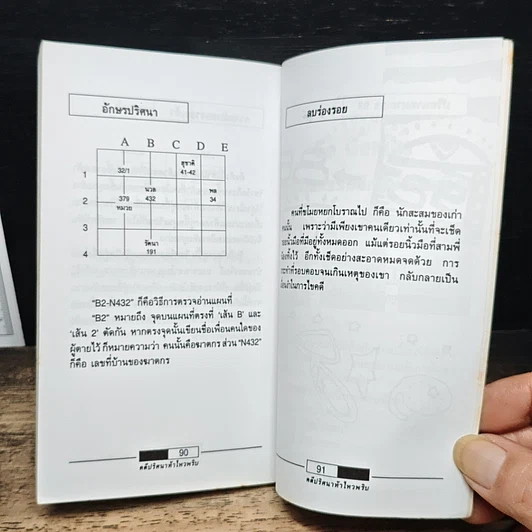 อักษรปริศนา
A B C D E
สุชาติ
1 32/1 41-42
นวล พล
2 379 432 34
หมวย
3
รัตนา
4 191
"B2-N432" ก็คือวิธีการตรวจอ่านแผนที่
"B2" หมายถึง จุดบนแผนที่ตรงที่ 'เส้น B' และ
'เส้น 2' ตัดกัน หากตรงจุดนั้นเขียนชื่อเพื่อนคนใดของ
ผู้ตายไว้ ก็หมายความว่า คนนั้นคือฆาตกร ส่วน "N432"
ก็คือ เลขที่บ้านของฆาตกร
90
คดีปริศนาท้าไหวพริบ
ลบร่องรอย
คนที่ขโมยหยกโบราณไป ก็คือ นักสะสมของเก่า
คนนั้น เพราะว่ามีเพียงเขาคนเดียวเท่านั้นที่จะเช็ด
รอยนิ้วมือที่มีอยู่ทั้งหมดออก แม้แต่รอยนิ้วมือที่สามพี่
ทิ้งไว้ อีกทั้งเช็ดอย่างสะอาดหมดจดด้วย การ
กระทำที่รอบคอบจนเกินเหตุของเขา กลับกลายเป็น
ในการไขคดี
91
คดีปริศนาท้าไหวพริบ